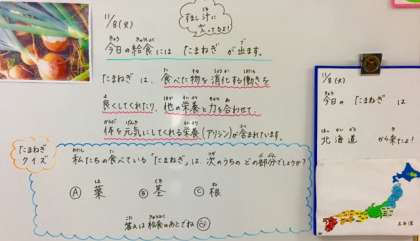 11/8(火)
すまし汁に
入ってるよ!
今日の給食には たまねぎ が 出ます。
たまねぎ は、食べた物を消化する働きを
良くしてくれたり、他の栄養と力を合わせて、
体を元気にしてくれる栄養(アリシン)が含まれています。
たまねぎ
クイズ
私たちの食べている"たまねぎ"は、次のうちの どの部分でしょうか?
Ⓐ 葉 Ⓑ 茎 Ⓒ 根
答えは 給食のあとでね
11/8(火)
今日の たまねぎ は
北海道 から来たよ!